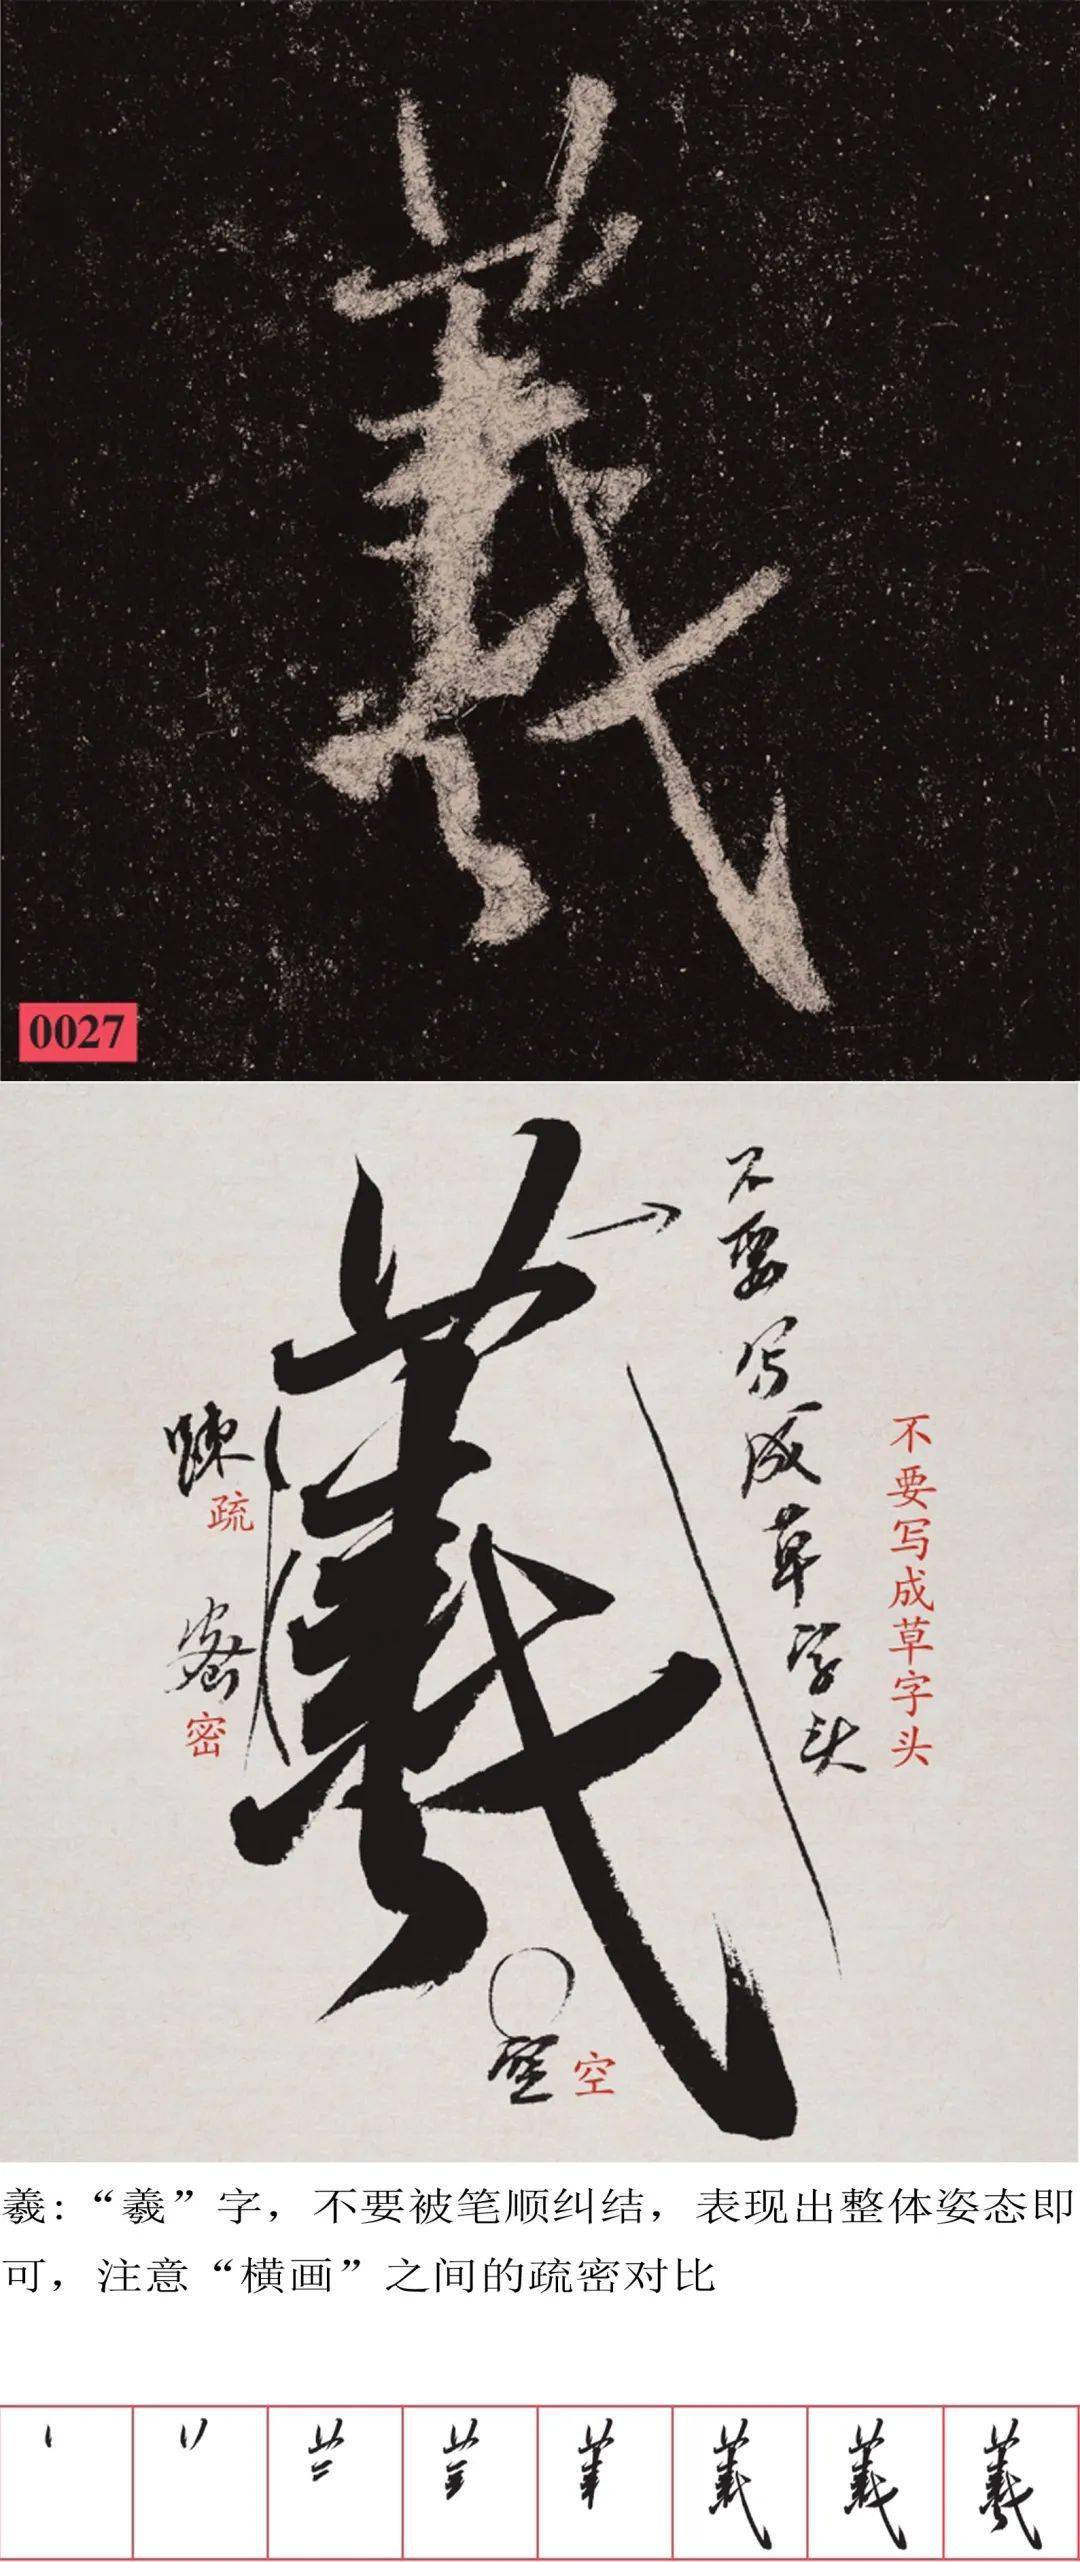 羲
0027
羲
不要写成草字头
不要写成草字头
疎
疏
密
密
空
空
羲：“羲”字，不要被笔顺纠结，表现出整体姿态即
可，注意“横画”之间的疏密对比
羲